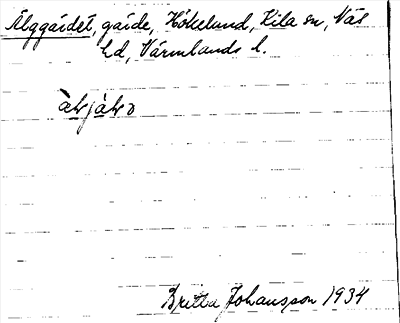 Älggärdet, gärde, Hökelund, Kila sn, Näs
hd, Värmlands l.
Britta Johansson 1934